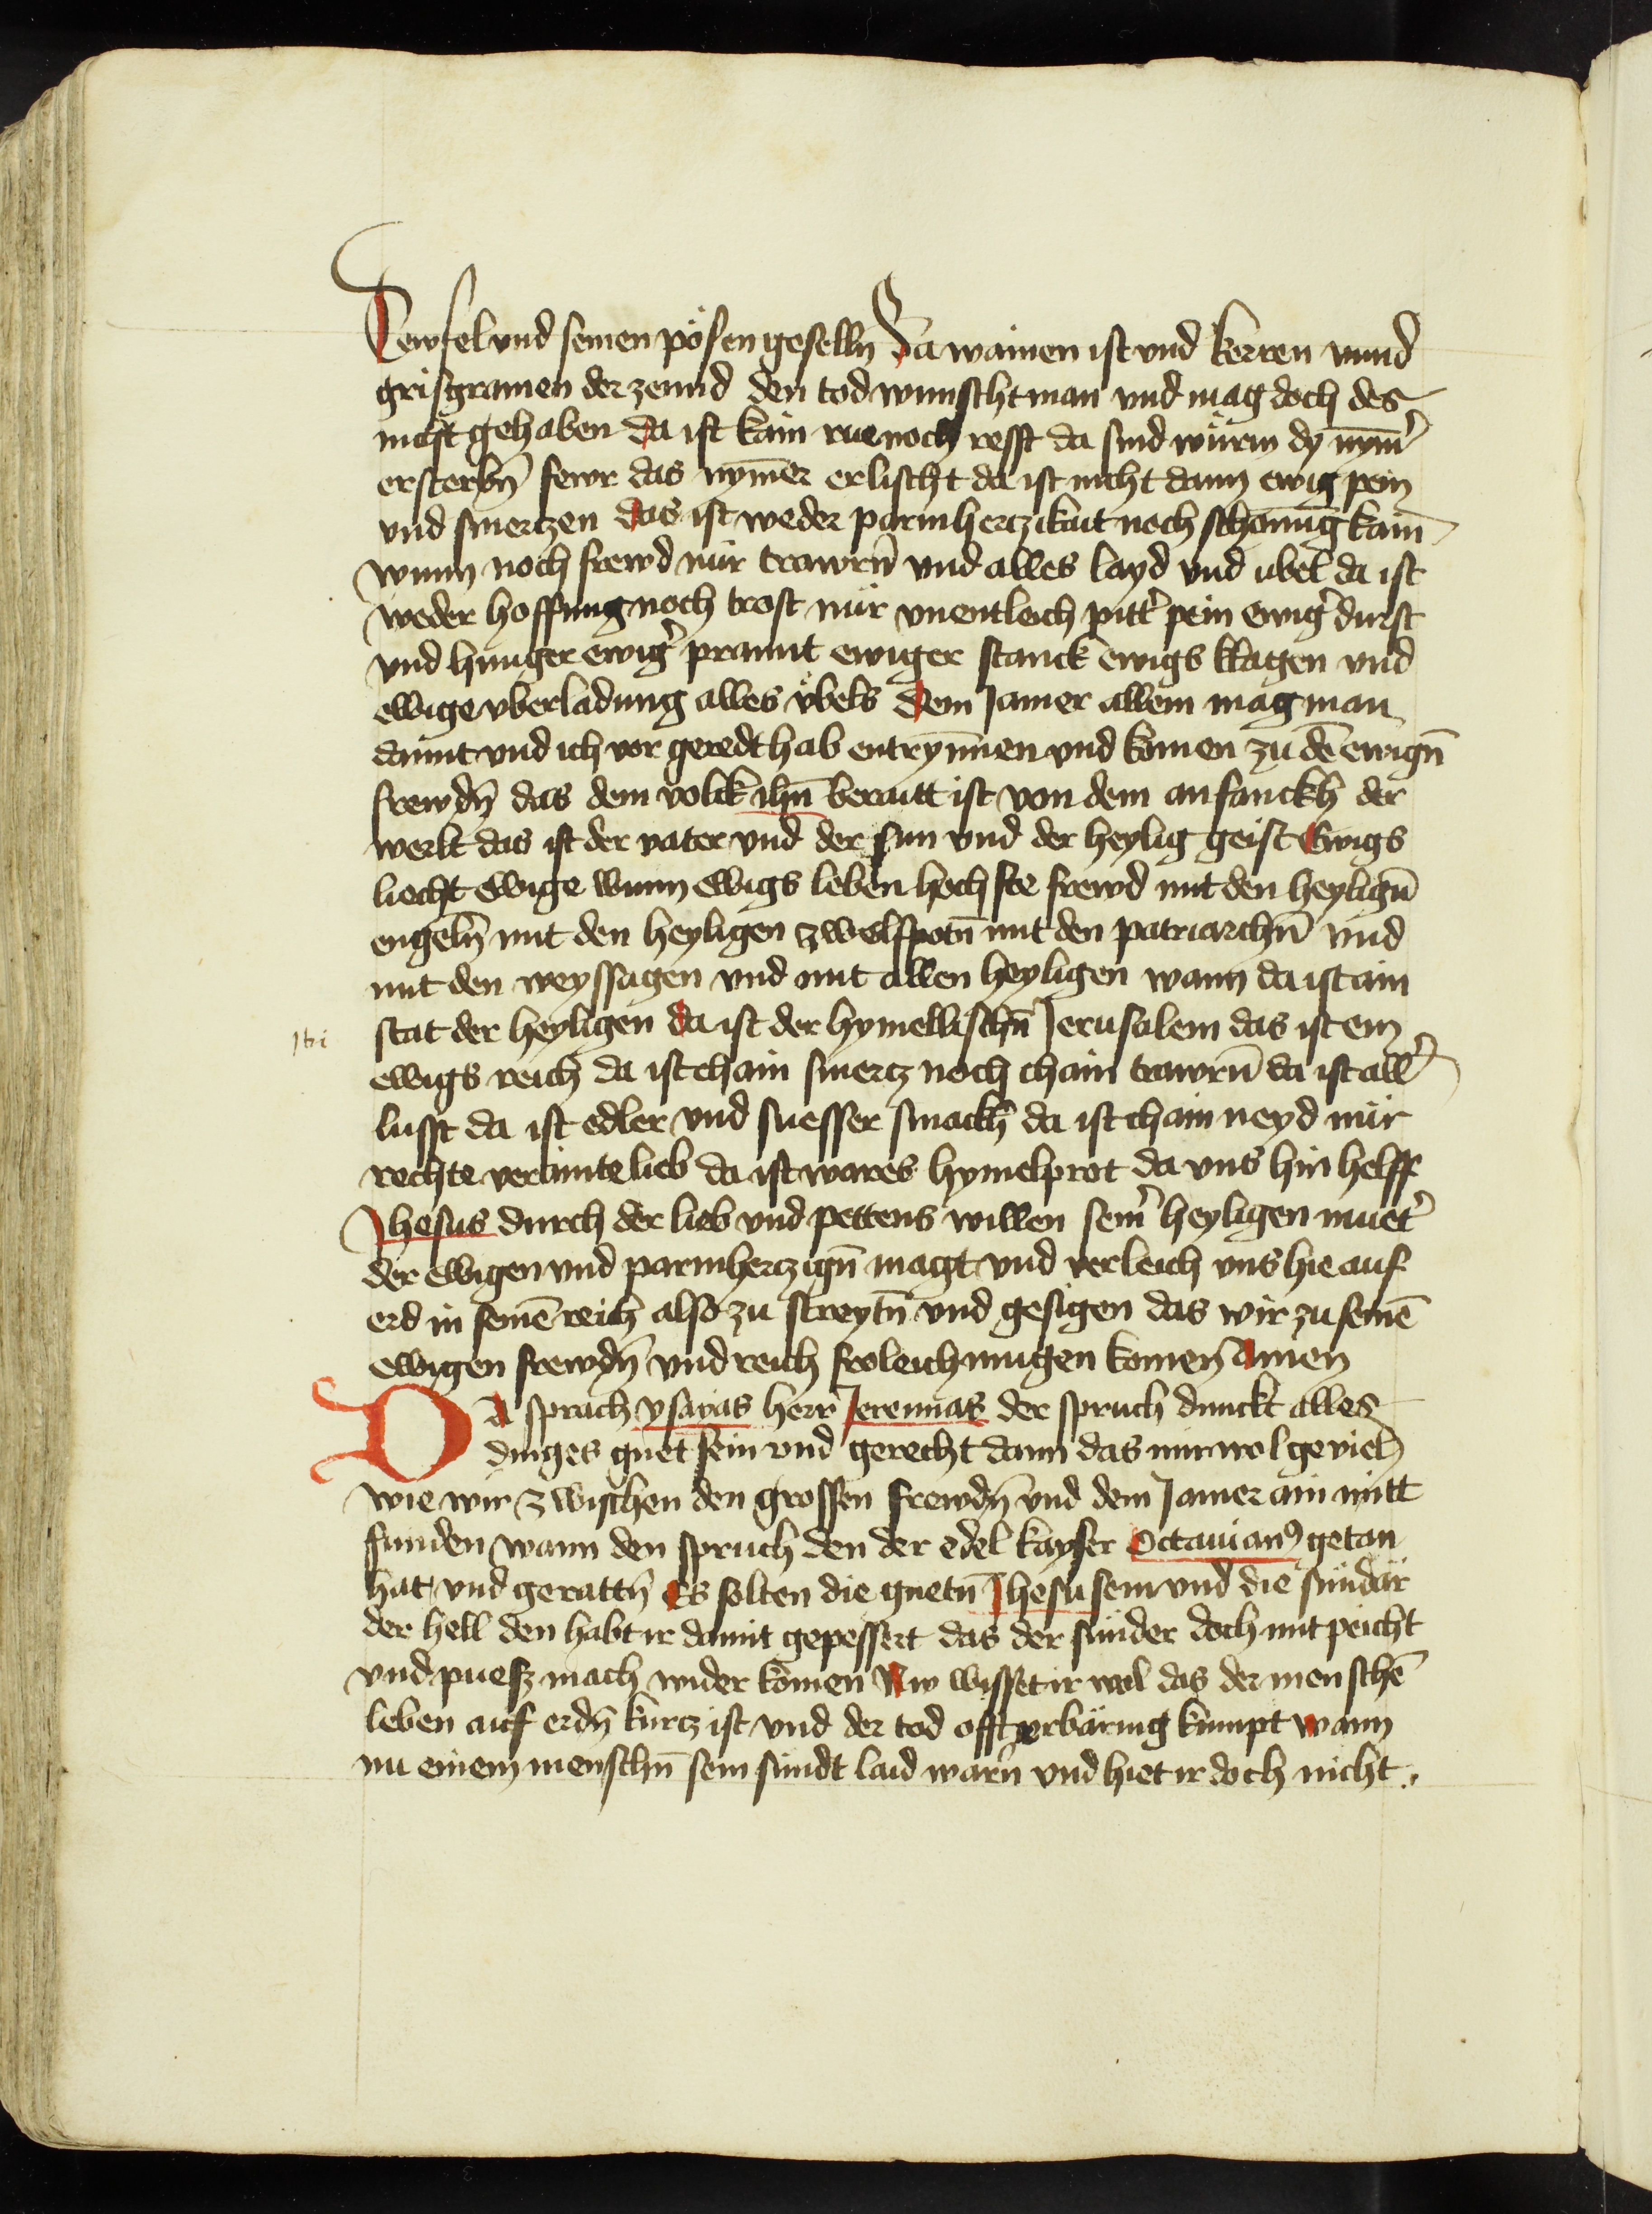 Tewfel vnd seinen pösen geselln̄ Da wainen ist vnd kerren vnnd
grisgramen der zennd den tod wunscht man vnd mag doch des
nicht gehaben Da ist kain rue noch resst da sind würm dy nym̄er
ersterbn̄ fewr das nym̄er erlischt da ist nicht dann ewig pein
vnd smertzen Das ist weder parmhertzikait noch schonung kain
wunn noch frewd nür trawrn̄ vnd alles layd vnd ubel da ist
weder hoffnung noch trost nür vnentleich pitter pein ewiger durst
vnd hunger ewiger prannt ewiger stanck ewigs klagen vnd
ewige vberladung alles vbels Dem Jamer allem mag man
damit vnd ich vor geredt hab entrynnen vnd komen zu dē ewign̄
frewdn̄ das dem volck ihū beraitt ist von dem anfanckh der
werlt das ist der vater vnd der sun vnd der heylig geist Ewigs
liecht ewige wunn ewigs leben hochste frewd mit den heylign̄
engeln̄ mit den heyligen zwelfpotn̄ mit den patriarchn̄ vnd
mit den weyssagen vnd mit allen heyligen wann da ist ain
stat der heyligen Da ist der hymellischn̄ Jerusalem das ist ein
ewigs reich da ist chain smertz noch chain trawrn̄ da ist aller
lusst da ist edler vnd suesser smackh da ist chain neyd nür
rechte verainte lieb da ist wares hymelprot da vns hin helff
Jhesus durch der lieb vnd pettens willen seiner heyligen mueter
der ewigen vnd parmhertzign̄ magt vnd verleich vns hie auf
erd in seinē reich also zu streytn̄ vnd gesigen das wir zu seinē
ewigen frewdn̄ vnd reich froleich mugen komen Amen
Da sprach ysayas herr Jeremias der spruch dunckt alles
dinges guet sein vnd gerecht dann das mir wol geviel
wie wir zwischen den grossen frewdn̄ vnd dem Jamer ain mitt
funden wann den spruch den der edel kayser Octauianꝰ getan
hat vnd gerattn̄ Es solten die guetn̄ Jhesu sein vnd die sündär
der hell den habt ir damit gepessert das der sünder doch mit peicht
vnd puesz mach wider komen Nw wisset ir wol das der menschē
leben auf erdn̄ kurtz ist vnd der tod offt gebäring kumpt wann
nu einem menschn̄ sein sündt laid warn̄ vnd hiet ir doch nicht